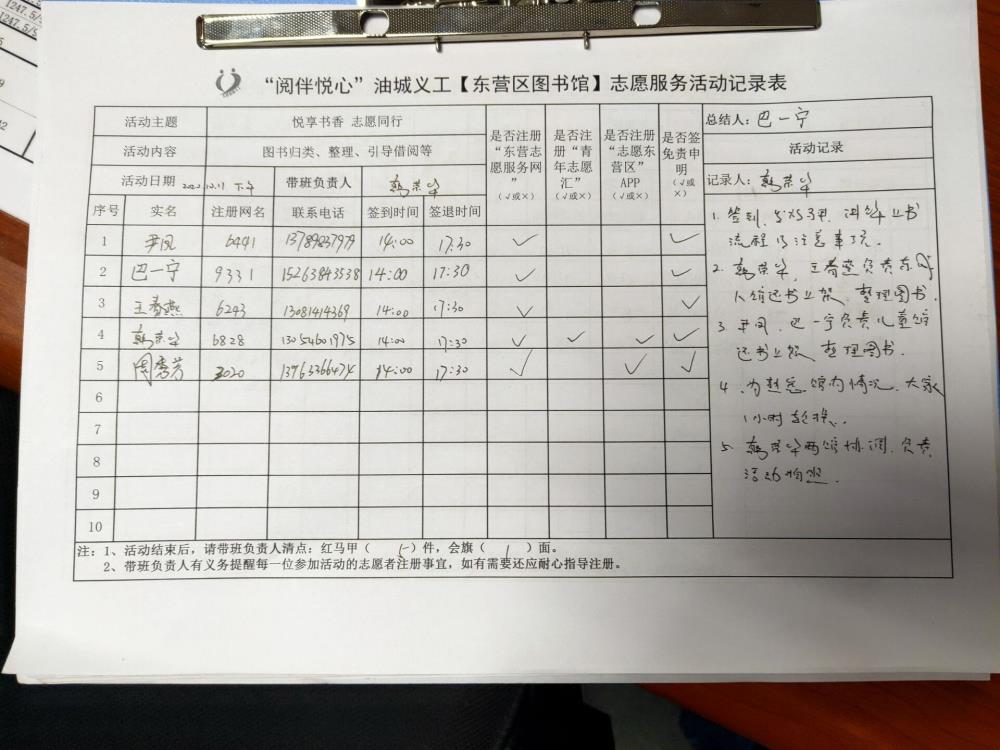 1247.5/5
“阅伴悦心”油城义工【东营区图书馆】志愿服务活动记录表
活动主题 悦享书香 志愿同行
活动内容 图书归类、整理、引导借阅等
活动日期 下午 带班负责人 韩荣华
序号 实名 注册网名 联系电话 签到时间 签退时间 是否注册“东营志愿服务网”（√或×） 是否注册“青年志愿汇”（√或×） 是否注册“志愿东营区”APP（√或×） 是否签免责申明（√或×）
1 尹凤 6441 13789237979 14:00 17:30 √ √
2 巴一宁 9331 15263843538 14:00 17:30 √ √
3 王春燕 6243 13081414369 14:00 17:30 √ √
4 韩荣华 6828 13054601975 14:00 17:30 √ √ √ √
5 周秀芳 2020 14:00 17:30 √ √ √
6
7
8
9
10
总结人：巴一宁
活动记录
记录人：韩荣华
1. 签到、 上书
流程及注意事项.
2. 韩荣华，王春燕负责成
人馆还书上架、整理图书.
3. 尹凤，巴一宁负责儿童馆
还书上架 整理图书.
4. 为 馆内情况，大家
1小时轮换.
5. 韩荣华两馆协调，负责
活动拍照.
注：1、活动结束后，请带班负责人清点：红马甲（ 5 ）件，会旗（ 1 ）面。
2、带班负责人有义务提醒每一位参加活动的志愿者注册事宜，如有需要还应耐心指导注册。